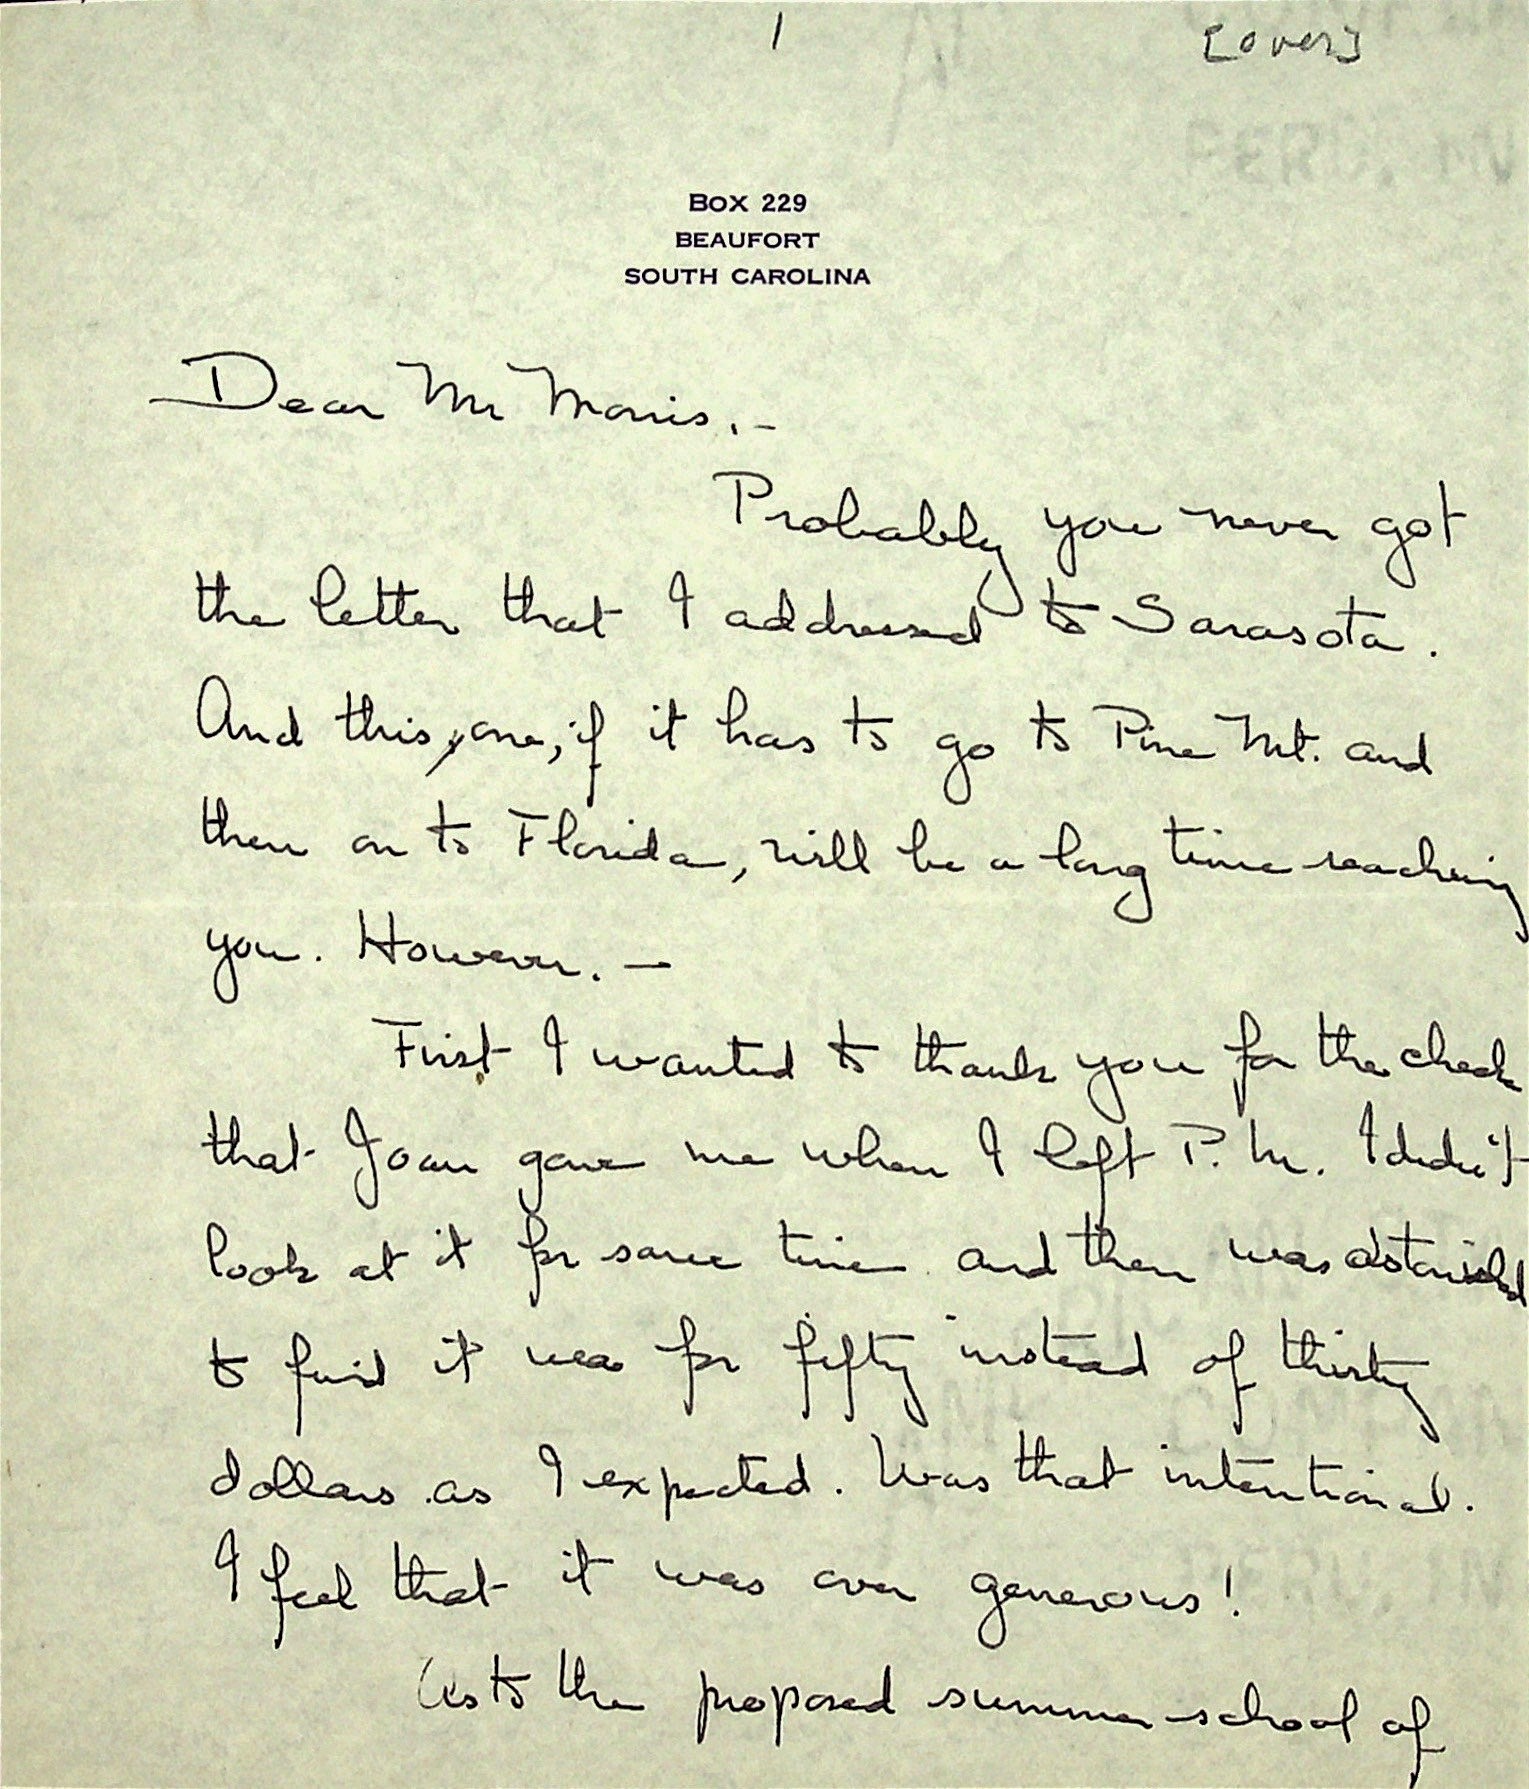 1
[over]
BOX 229
BEAUFORT
SOUTH CAROLINA
Dear Mr Morris.-
Probably you never got
the letter that I addressed to Sarasota.
And this, one, if it has to go to Pine Mt. and
then on to Florida, will be a long time reaching
you. However. —
First I wanted to thank you for the check
that Joan gave me when I left P. M. I didn't
look at it for some time and then was astonished
to find it was for fifty instead of thirty
dollars as I expected. Was that intentional.
I feel that it was over generous!
As to the proposed summer school of